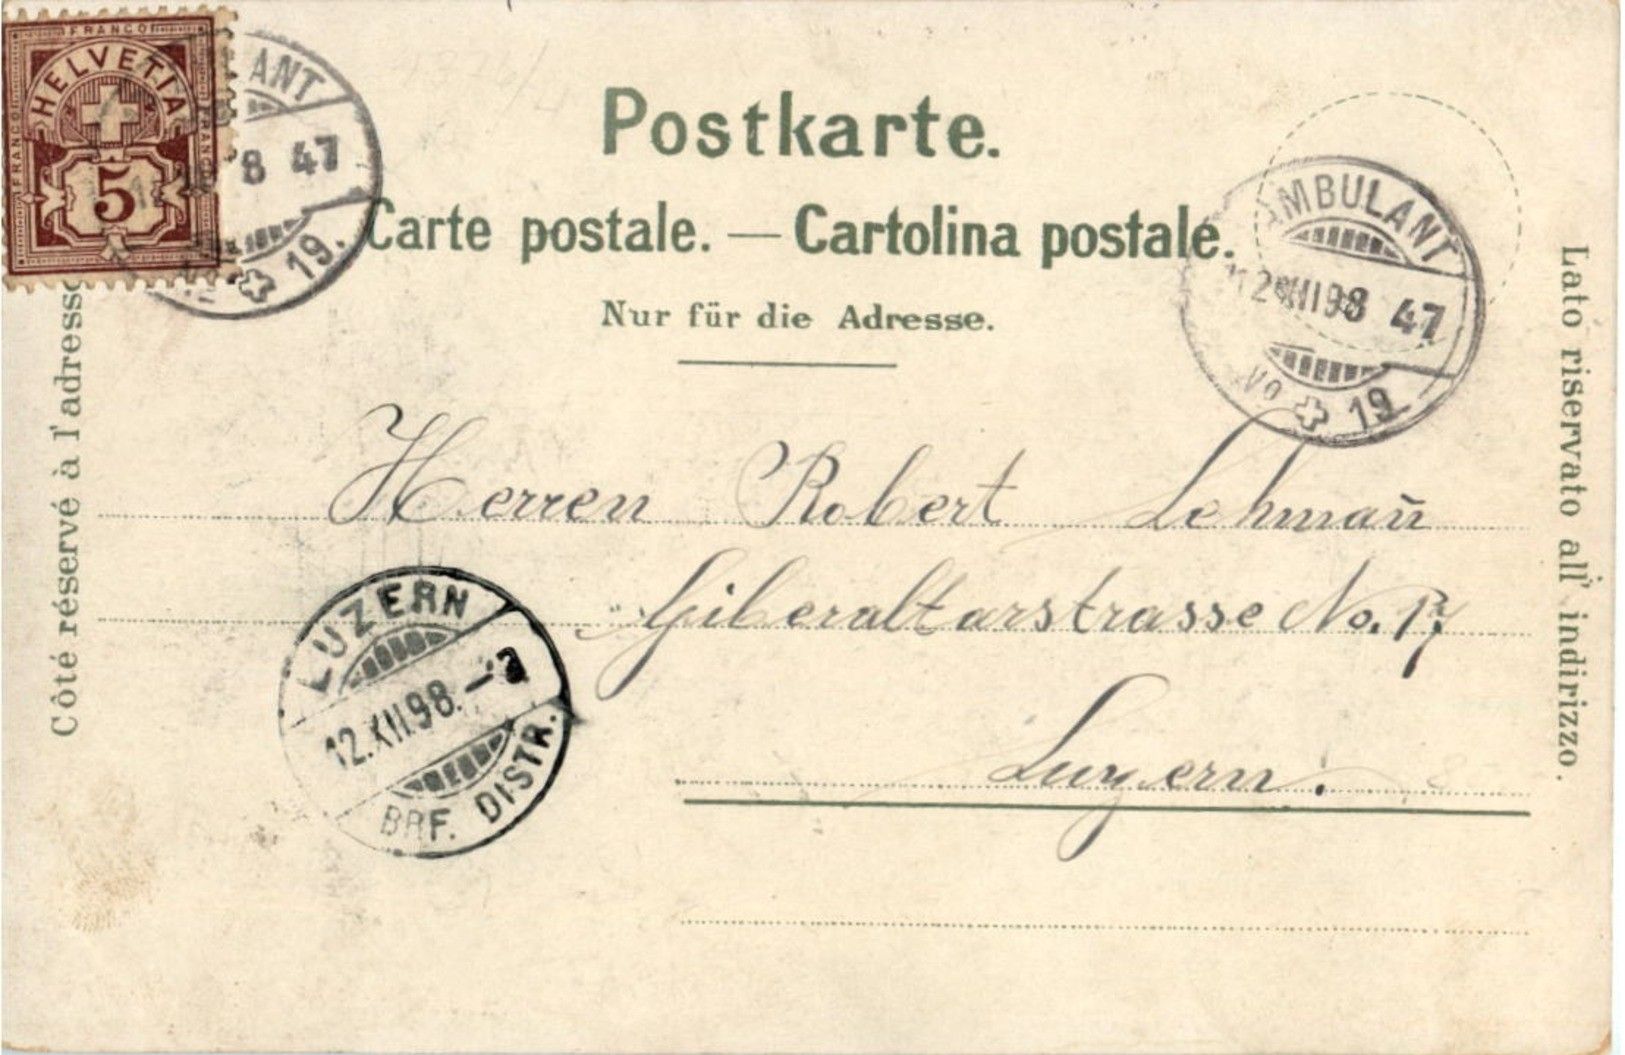 FRANCO
HELVETIA
FRANCO
FRANCO
5
ANT
8 47
19.
Postkarte.
Carte postale. — Cartolina postale.
Nur für die Adresse.
AMBULANT
12 XII 98 47
No 19
Côté réservé à l'adresse
Lato riservato all' indirizzo.
Herren Robert Lehman̄
Giberaltarstrasse No. 17
Luzern.
LUZERN
12.XII.98.
BRF. DISTR.